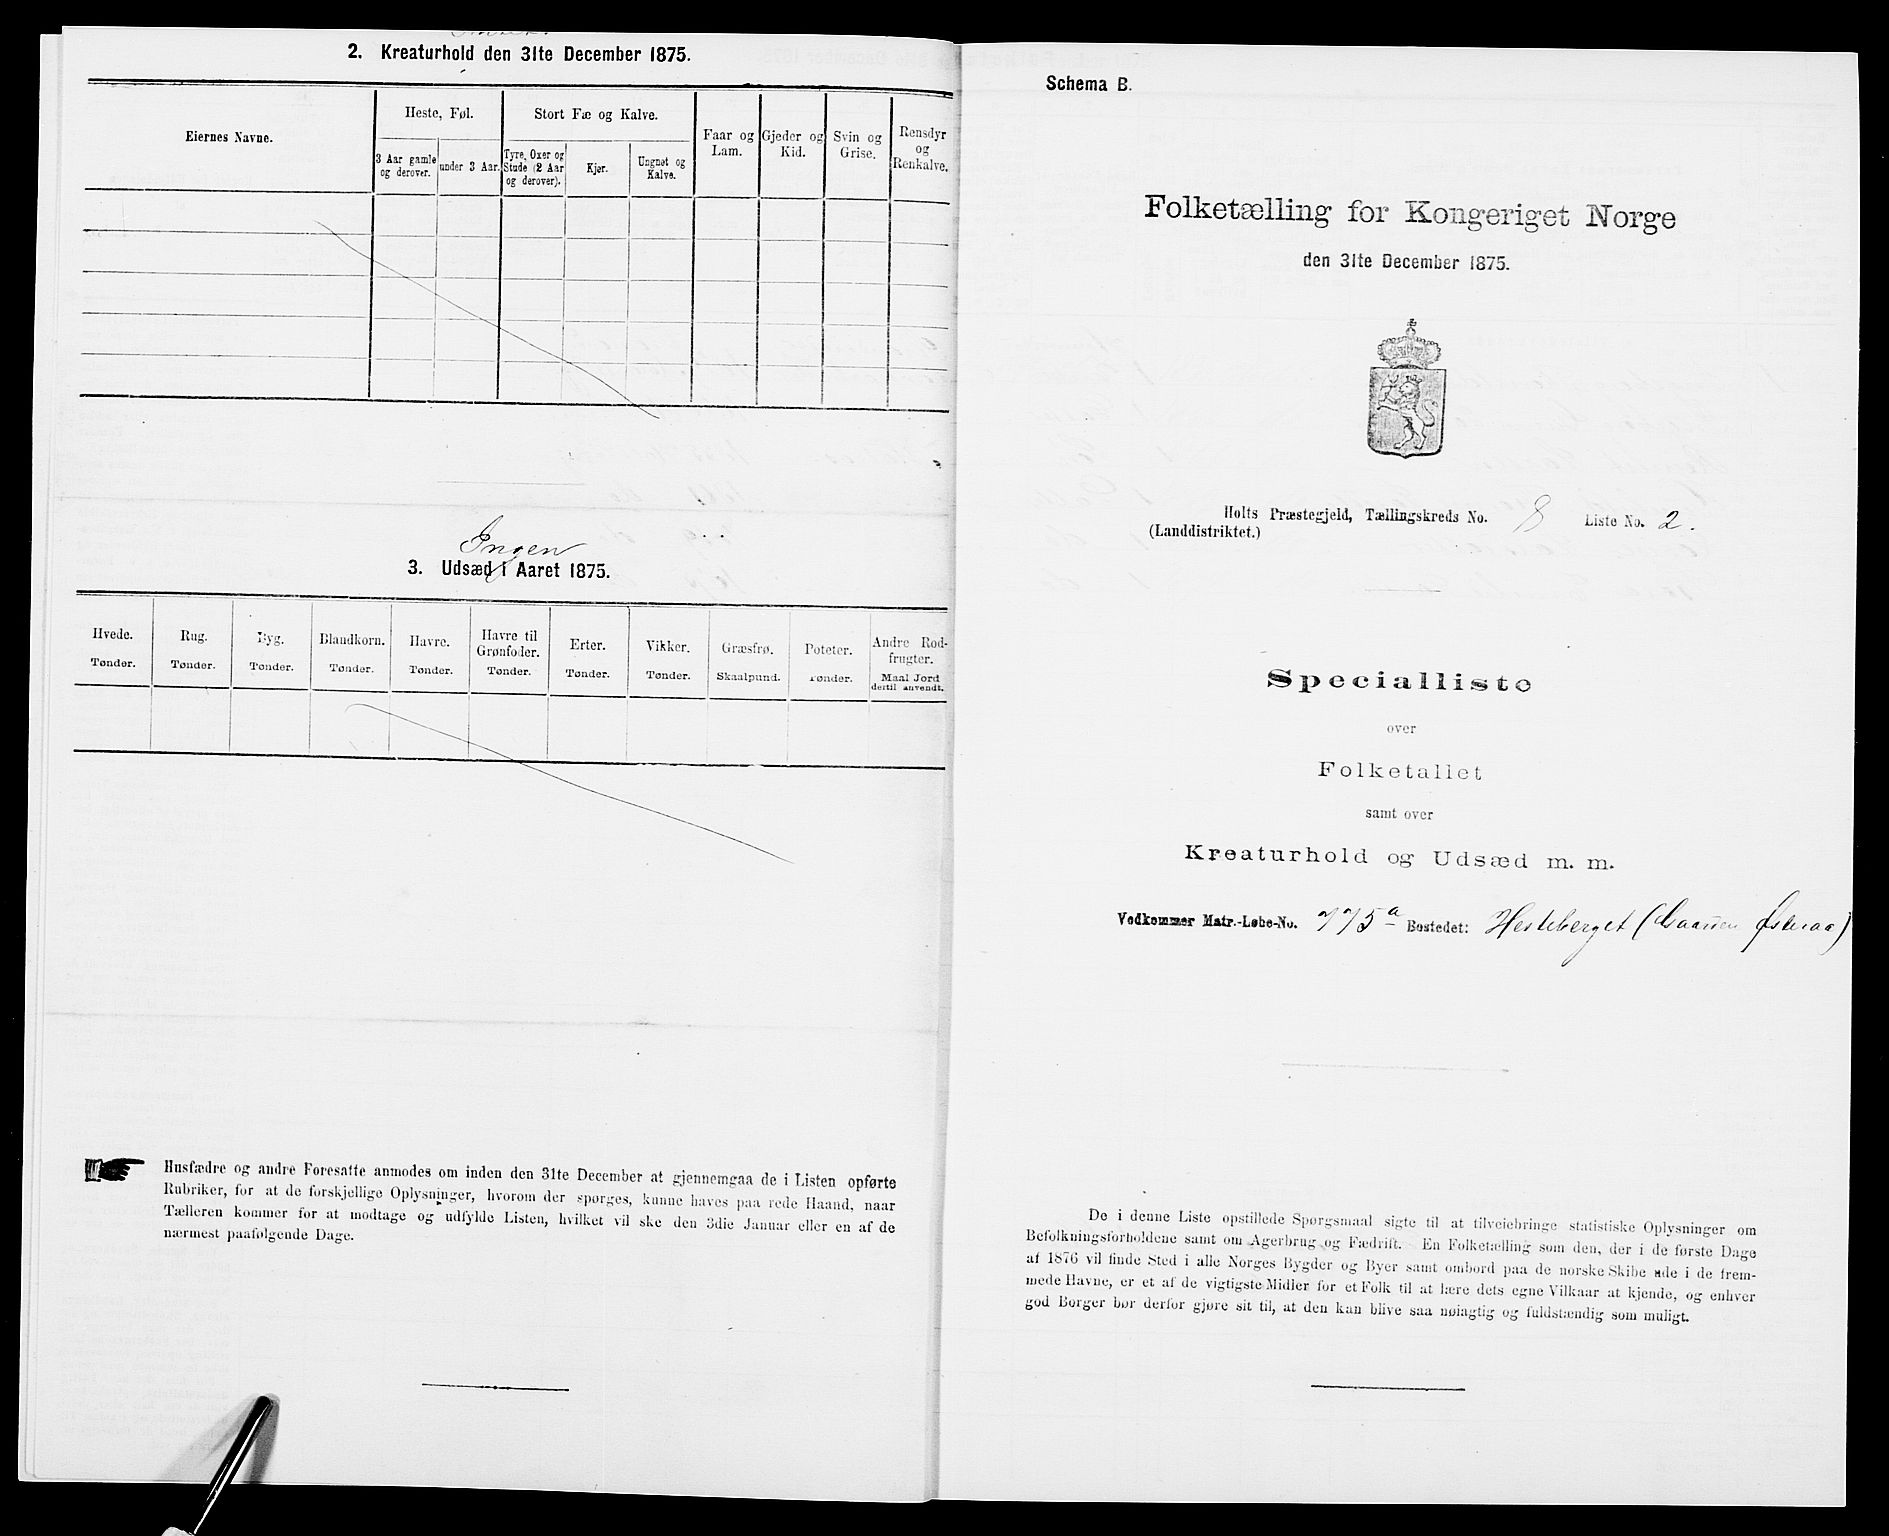 2. Kreaturhold den 31te December 1875.
Eiernes Navne.
Heste, Føl.
Stort Fæ og Kalve.
Faar og Lam.
Gjeder og Kid.
Svin og Grise.
Rensdyr og Renkalve.
3 Aar gamle og derover.
under 3 Aar.
Tyre, Oxer og Stude (2 Aar og derover).
Kjør.
Ungnøt og Kalve.
Ingen
3. Udsæd i Aaret 1875.
Hvede. Tønder.
Rug. Tønder.
Byg. Tønder.
Blandkorn. Tønder.
Havre. Tønder.
Havre til Grønfoder. Tønder.
Erter. Tønder.
Vikker. Tønder.
Græsfrø. Skaalpund.
Poteter. Tønder.
Andre Rodfrugter. Maal Jord dertil anvendt.
Husfædre og andre Foresatte anmodes om inden den 31te December at gjennemgaa de i Listen opførte
Rubriker, for at de forskjellige Oplysninger, hvorom der spørges, kunne haves paa rede Haand, naar
Tælleren kommer for at modtage og udfylde Listen, hvilket vil ske den 3die Januar eller en af de
nærmest paafølgende Dage.
Schema B.
Folketælling for Kongeriget Norge
den 31te December 1875.
Holts Præstegjeld, Tællingskreds No. 8 Liste No. 2.
(Landdistriktet.)
Specialliste
over
Folketallet
samt over
Kreaturhold og Udsæd m. m.
Vedkommer Matr.-Løbe-No. 775a Bostedet: Hesteberget (Gaarden Østeraa)
De i denne Liste opstillede Spørgsmaal sigte til at tilveiebringe statistiske Oplysninger om
Befolkningsforholdene samt om Agerbrug og Fædrift. En Folketælling som den, der i de første Dage
af 1876 vil finde Sted i alle Norges Bygder og Byer samt ombord paa de norske Skibe ude i de frem-
mede Havne, er et af de vigtigste Midler for et Folk til at lære dets egne Vilkaar at kjende, og enhver
god Borger bør derfor gjøre sit til, at den kan blive saa nøiagtig og fuldstændig som muligt.